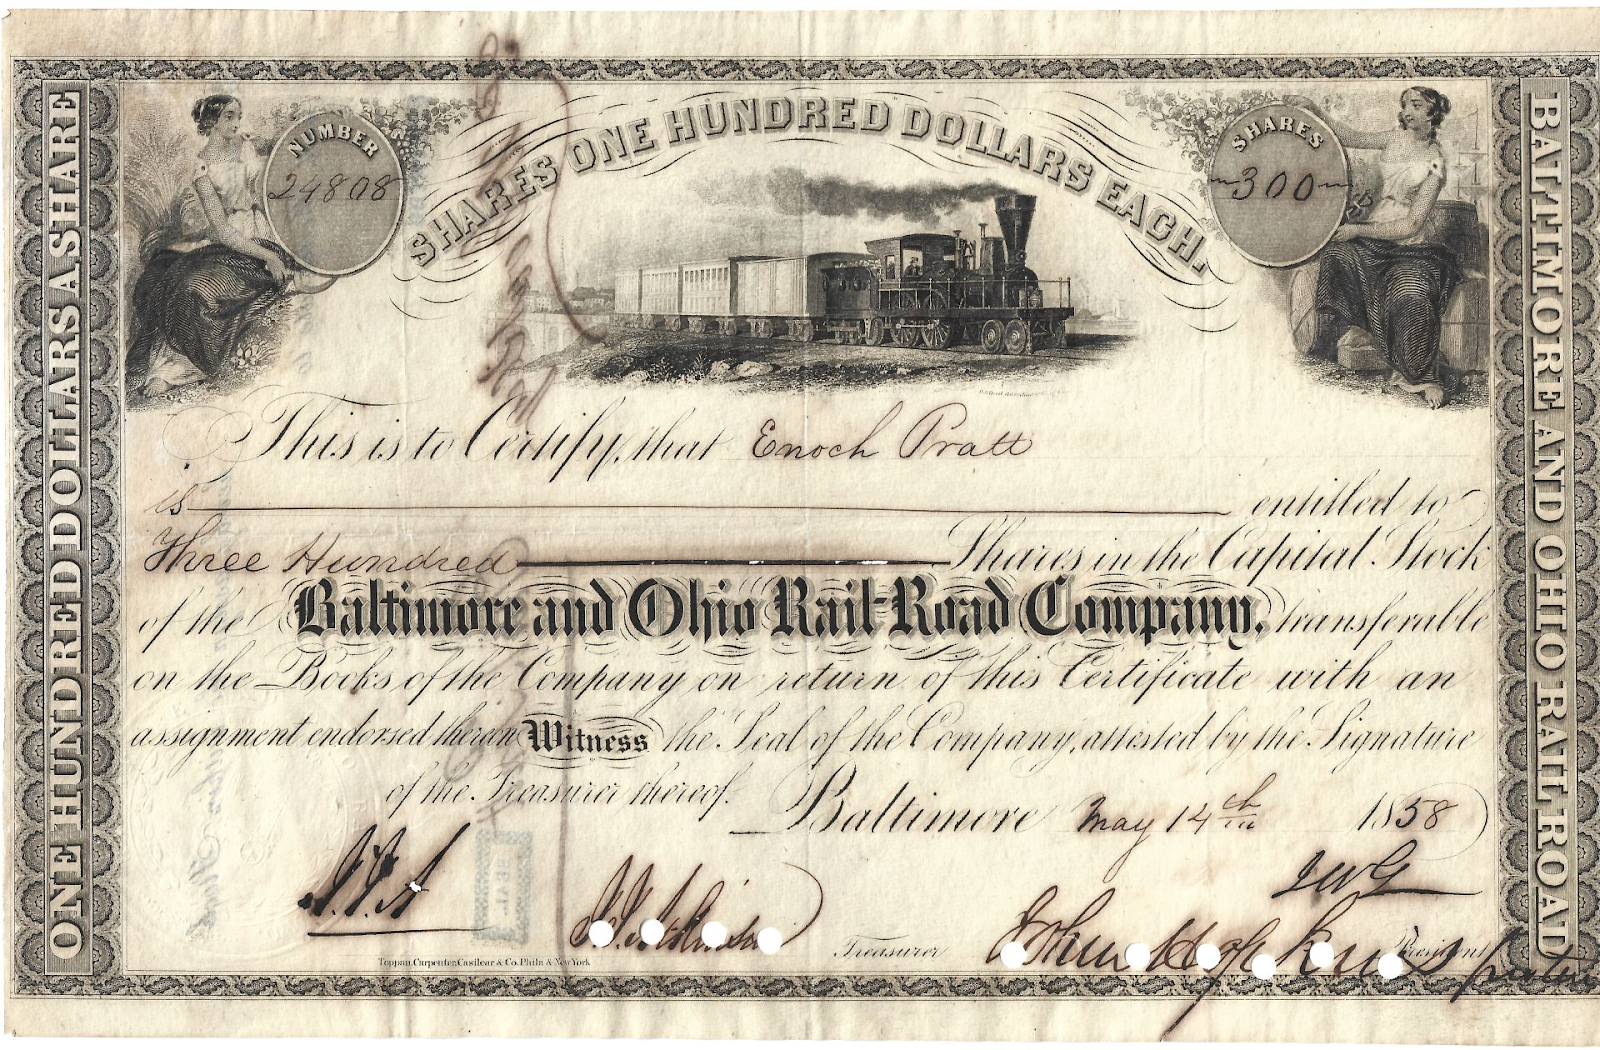 ONE HUNDRED DOLLARS A SHARE
NUMBER
24808
SHARES ONE HUNDRED DOLLARS EACH.
SHARES
300
BALTIMORE AND OHIO RAILROAD
This is to Certify, that Enoch Pratt
is entitled to
Three Hundred Shares in the Capital Stock
of the Baltimore and Ohio Rail-Road Company, transferable
on the Books of the Company on return of this Certificate with an
assignment endorsed thereon Witness the Seal of the Company, attested by the Signature
of the Treasurer thereof. Baltimore May 14th 1858
J.J.A
JWG
J.J. Atkinson Treasurer Johns Hopkins President
Toppan, Carpenter, Casilear & Co. Phila & New York